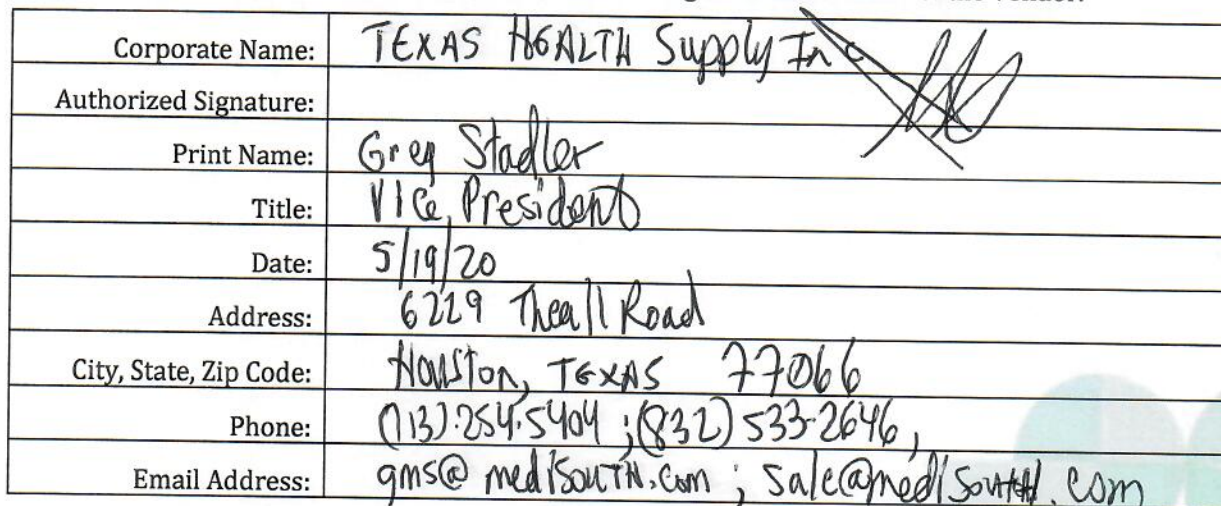 Corporate Name: TEXAS HEALTH Supply Inc
Authorized Signature:
Print Name: Greg Stadler
Title: Vice President
Date: 5/19/20
Address: 6229 Theall Road
City, State, Zip Code: Houston, TEXAS 77066
Phone: (713) 254-5404 ; (832) 533-2646,
Email Address: gms@medisouth.com ; sale@medisouth.com